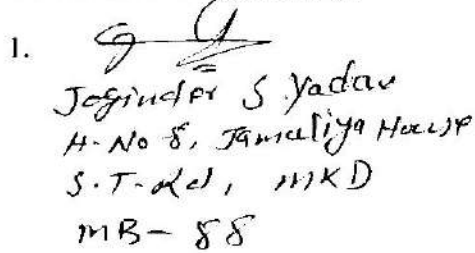 1.
Joginder S. Yadav
H-No 8, Jamaliya House
S.T. Rd, MKD
MB - 88